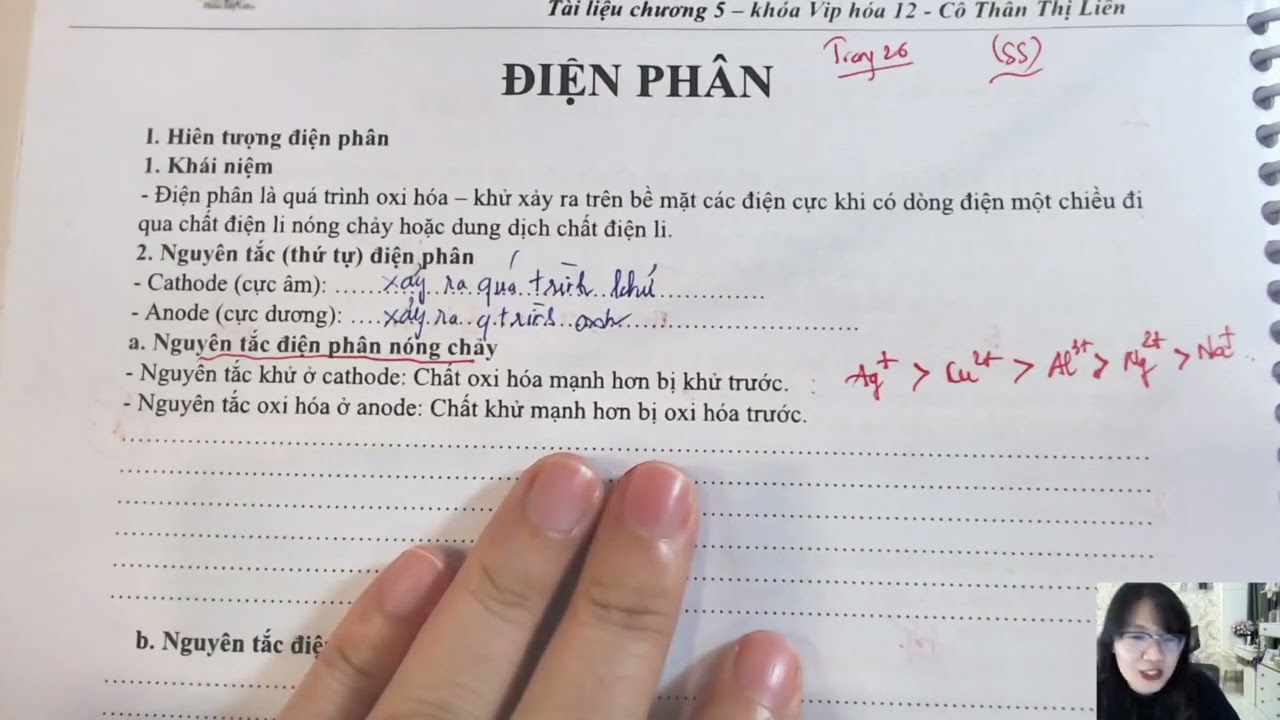 Tài liệu chương 5 – khóa Vip hóa 12 - Cô Thân Thị Liên
Trang 26 (SS)
ĐIỆN PHÂN
I. Hiện tượng điện phân
1. Khái niệm
- Điện phân là quá trình oxi hóa – khử xảy ra trên bề mặt các điện cực khi có dòng điện một chiều đi
qua chất điện li nóng chảy hoặc dung dịch chất điện li.
2. Nguyên tắc (thứ tự) điện phân
- Cathode (cực âm): ......xảy ra quá trình khử..............
- Anode (cực dương): ....xảy ra q.trình oxh..............
a. Nguyên tắc điện phân nóng chảy
- Nguyên tắc khử ở cathode: Chất oxi hóa mạnh hơn bị khử trước. : Ag⁺ > Cu²⁺ > Al³⁺ > Mg²⁺ > Na⁺.
- Nguyên tắc oxi hóa ở anode: Chất khử mạnh hơn bị oxi hóa trước.
b. Nguyên tắc